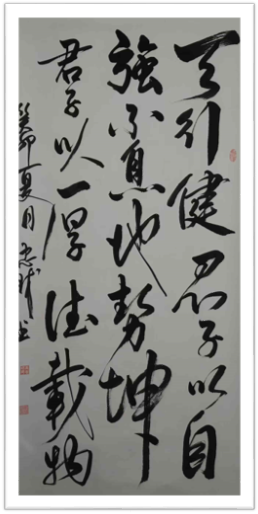 天行健君子以自
強不息地勢坤
君子以厚德載物
癸卯夏月忠